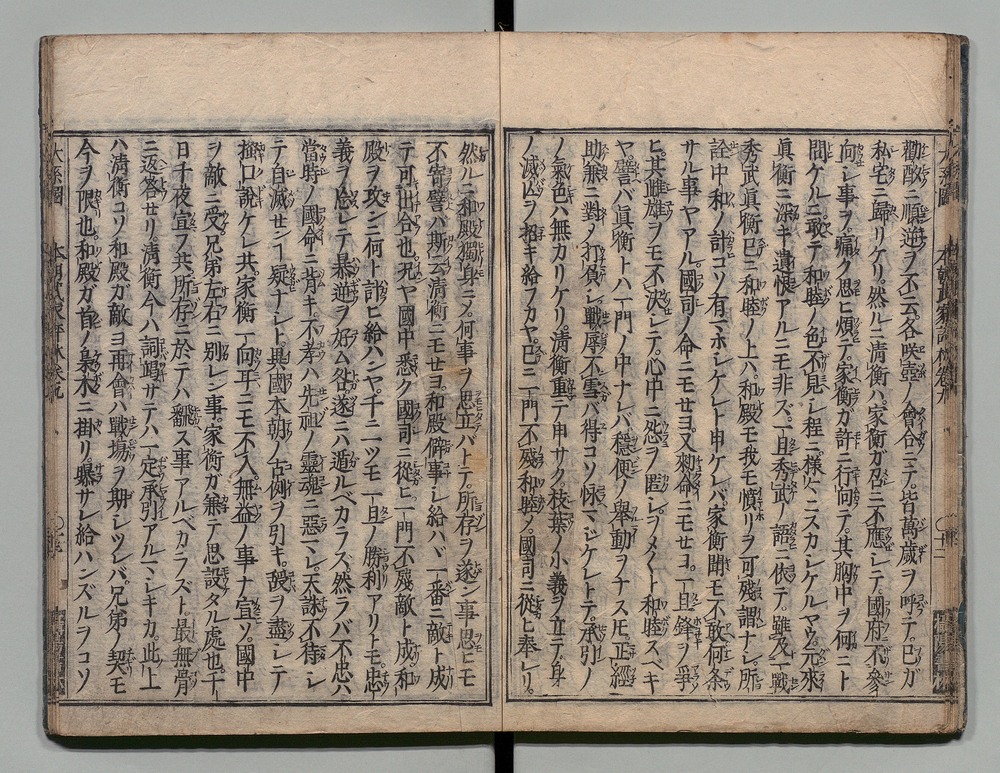 勸酌ニ順逆ヲ不云各咲壺ノ會合ニテ皆萬歳ヲ呼テ已ガ
私宅ニ歸リケリ。然ルニ清衡ハ家衡ガ召ニ不應シテ國府不參
向シ事ヲ痛ク思ヒ煩テ家衡ガ許ニ行向テ其胸中ヲ何ニト
問ケルニ敢テ和睦ノ色不見シ程ニ樣々ニスカシケルヤウ元來
眞衡ニ深キ遺恨アルニモ非ズ。一旦秀武ノ語ニ依テ。雖及一戰
秀武眞衡已ニ和睦ノ上ハ和殿モ我モ憤リヲ可殘謂ナシ。所
詮中和ノ計コソ有マホシケレト申ケレバ。家衡聞モ不敢何条
サル事ヤアル國司ノ命ニモセヨ。又勅命ニモセヨ。一旦鋒ヲ爭
ヒ其雌雄ヲモ不決シテ。心中ニ恐ヲ匿シヲメ〱ト和睦スベキ
ヤ譬バ眞衡トハ一門ノ中ナレバ穩便ノ舉動ヲナス𪜈。正經
助兼ニ對ノ打負シ戰辱不雪バ得コソ休マジケレトテ。承引
ノ氣色ハ無カリケリ。清衡重テ申サク。枝葉ノ小義ヲ立テ身
ノ滅亾ヲ招キ給フカヤ。已ニ一門不殘和睦ノ國司ニ從ヒ奉レリ。
然ルニ和殿獨身ニノ何事ヲ思立バトテ。所存ヲ遂ン事思ヒモ
不寄譬バ斯云清衡ニモセヨ。和殿僻事シ給ハバ一番ニ敵ト成
テ可出合也。况ヤ國中悉ク國司ニ從ヒ一門不殘敵ト成和
殿ヲ攻ンニ何ト計ヒ給ハンヤ。千ニ一ツモ一旦ノ勝利アリトモ。忠
義ヲ忘レテ暴逆ヲ好ム咎遂ニハ遁ルベカラズ然ラバ不忠ハ
當時ノ國命ニ背キ。不孝ハ先祖ノ靈魂ニ惡マレ。天誅不待シ
テ自滅センヿ疑ナシト。異國本朝ノ古例ヲ引キ。設ヲ盡シテ
掻口說ケレ共。家衡一向耳ニモ不入。無益ノ事ナ宣ソ。國中
ヲ敵ニ受兄弟左右ニ別レン事家衡ガ兼テ思設タル處也。千
日千夜宣フ共。所存ニ於テハ翻ス事アルベカラズト。最無骨
ニ返答セリ清衡今ハ詞蹈サテハ一定承引アルマシキカ。此上
ハ清衡コソ和殿ガ敵ヨ再會ハ戰場ヲ期シツレバ。兄弟ノ契モ
今ヲ限也。和殿ガ首ノ梟木ニ掛リ曝サレ給ハンズルラコソ